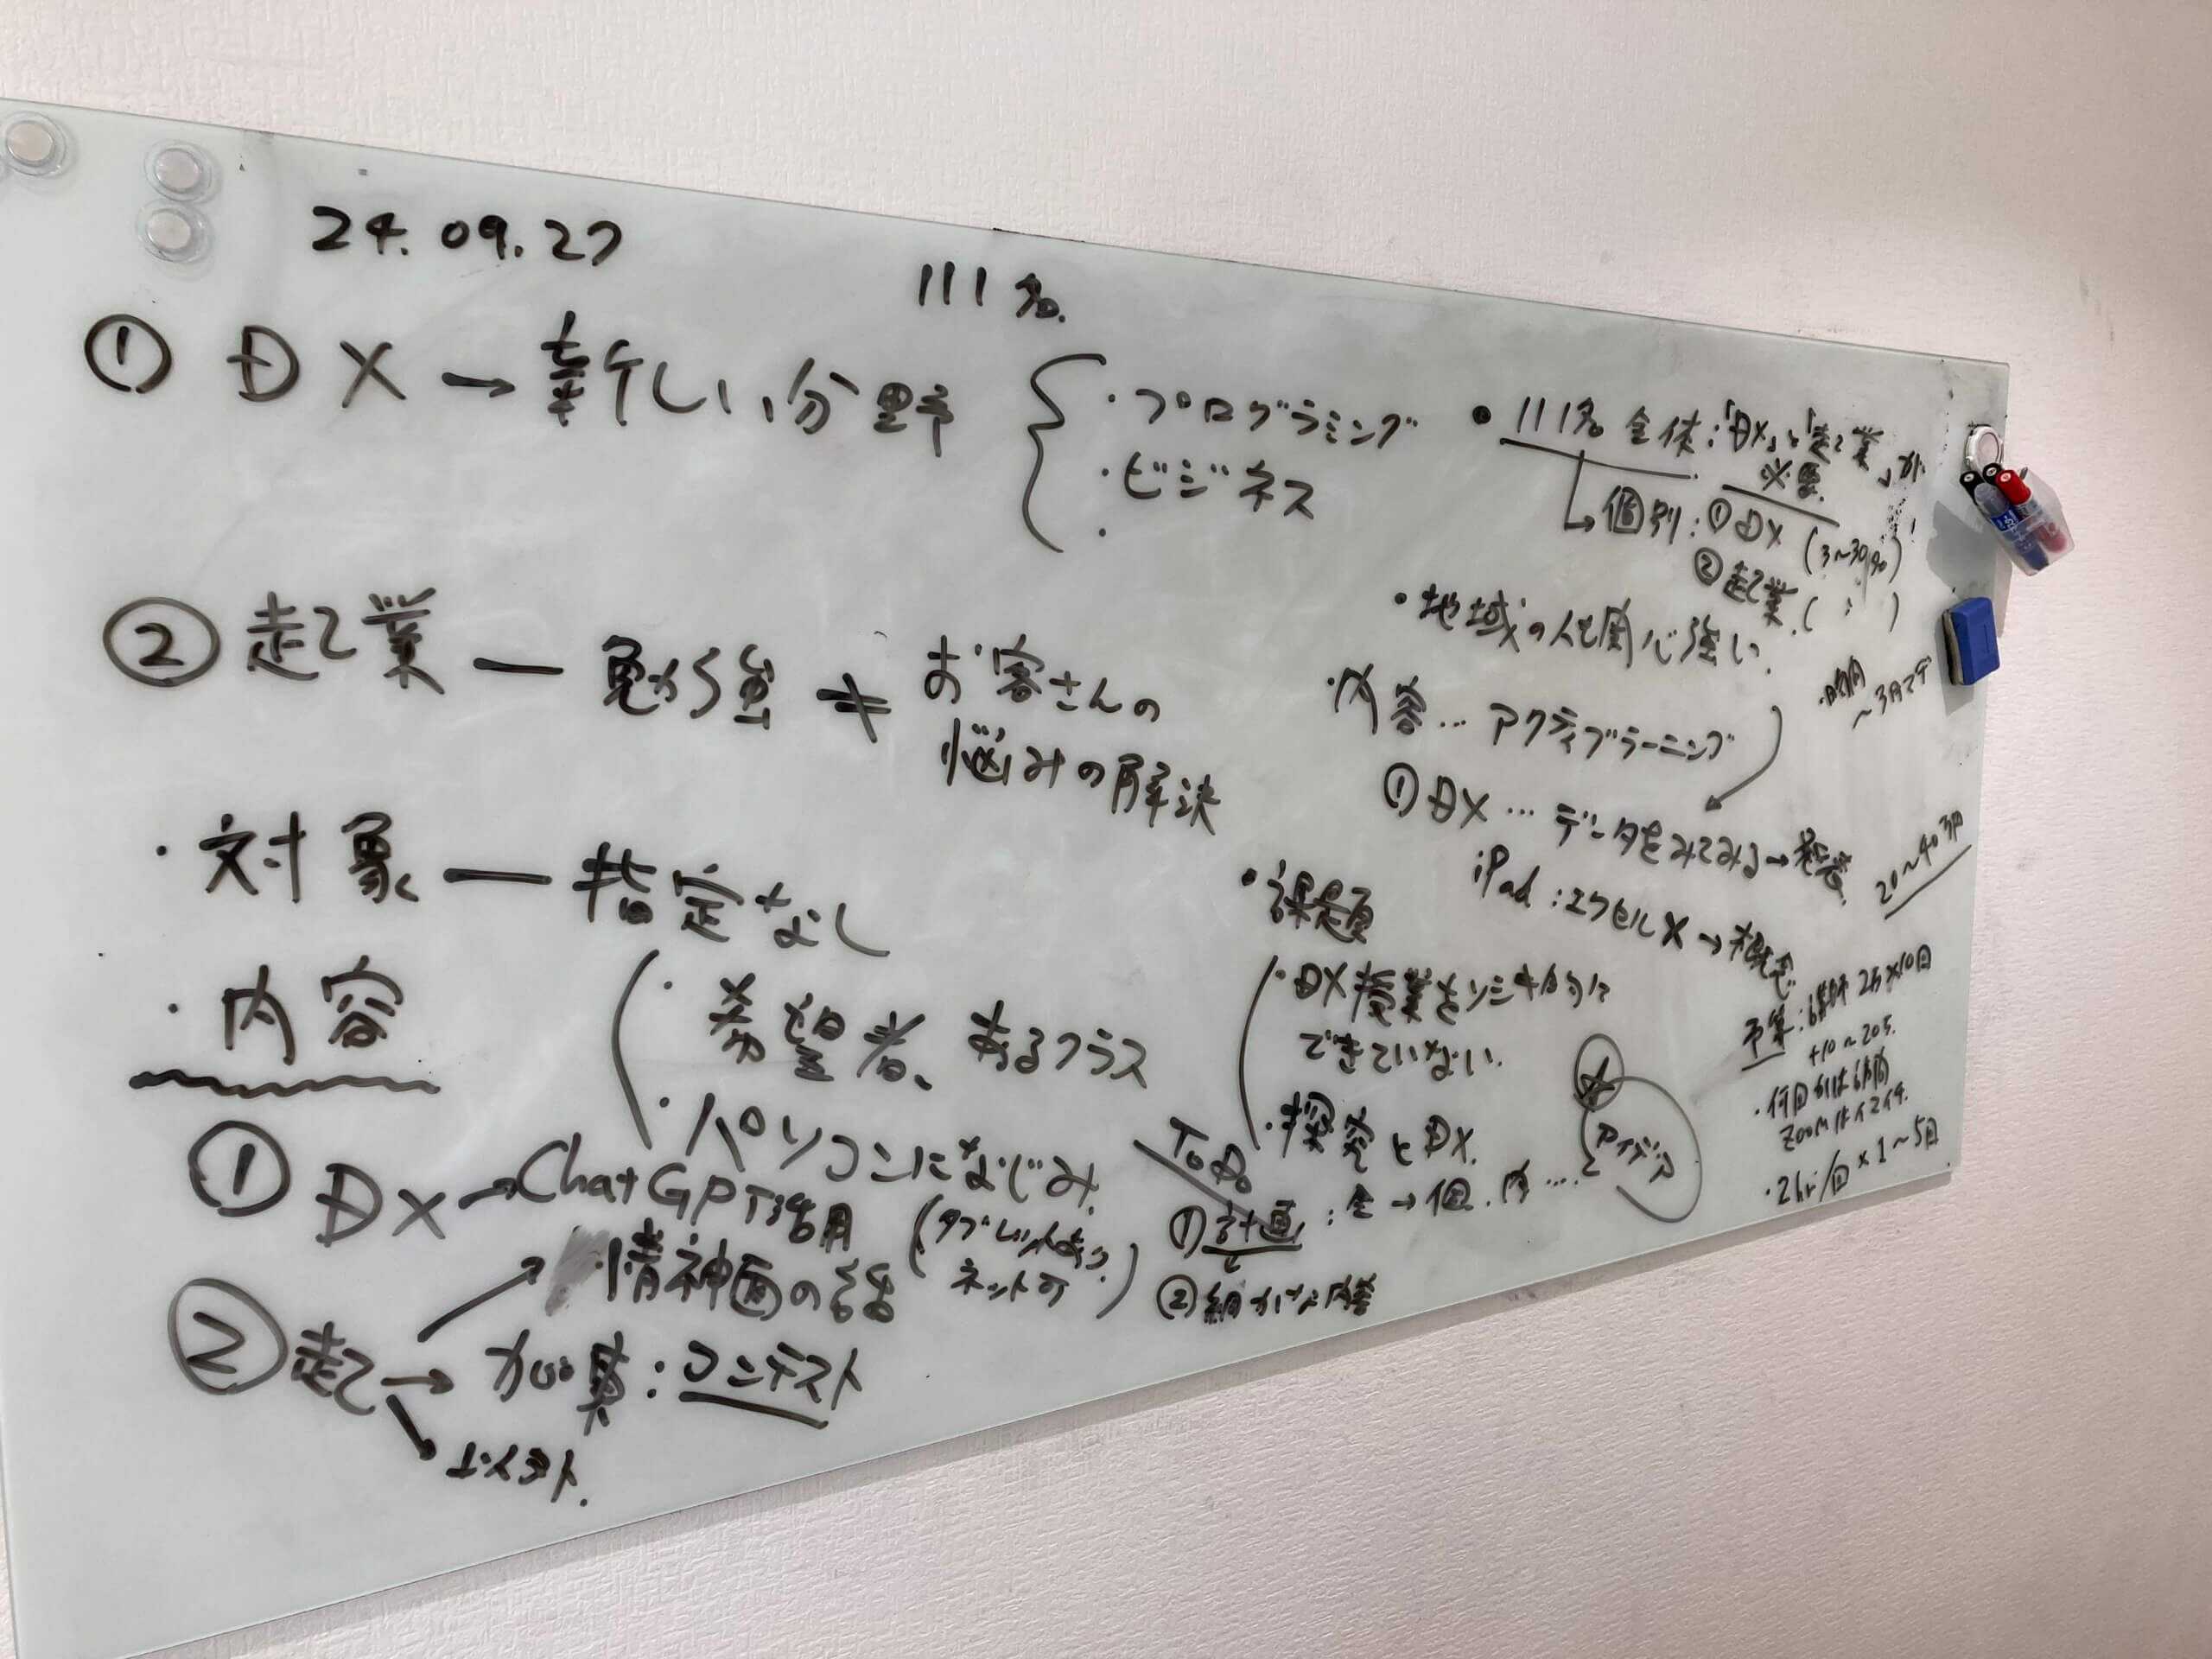 24.09.27
111名.
① DX → 新しい分野
・プログラミング
・ビジネス
・
② 起業 — 勉強 ≠ お客さんの
悩みの解決
・対象 — 指定なし
・希望者、あるクラス
・パソコンになじみ
(タブレット
ネット可)
・内容
① DX → ChatGPT活用
② 起 → ・精神面の話
→ 加算：コンテスト
→
● 111名 全体：「DX」と「起業」が
必要
↳ 個別：① DX (3~30名)
② 起業. (〃)
・地域の人も関心強い.
・時間
~3月マデ
・内容… アクティブラーニング
① DX … データをみてみる →
iPad：エクセル X → 概念
20~40万円
・課題
・DX授業を
できていない.
・探究とDX.
ToDo
① 計画：全→個.内….
② 細かな内容
アイデア
予算：講師 2万×10回
+10~20万.
・何回かは訪問
ZOOMはイマイチ.
・2hr/回 × 1~5回